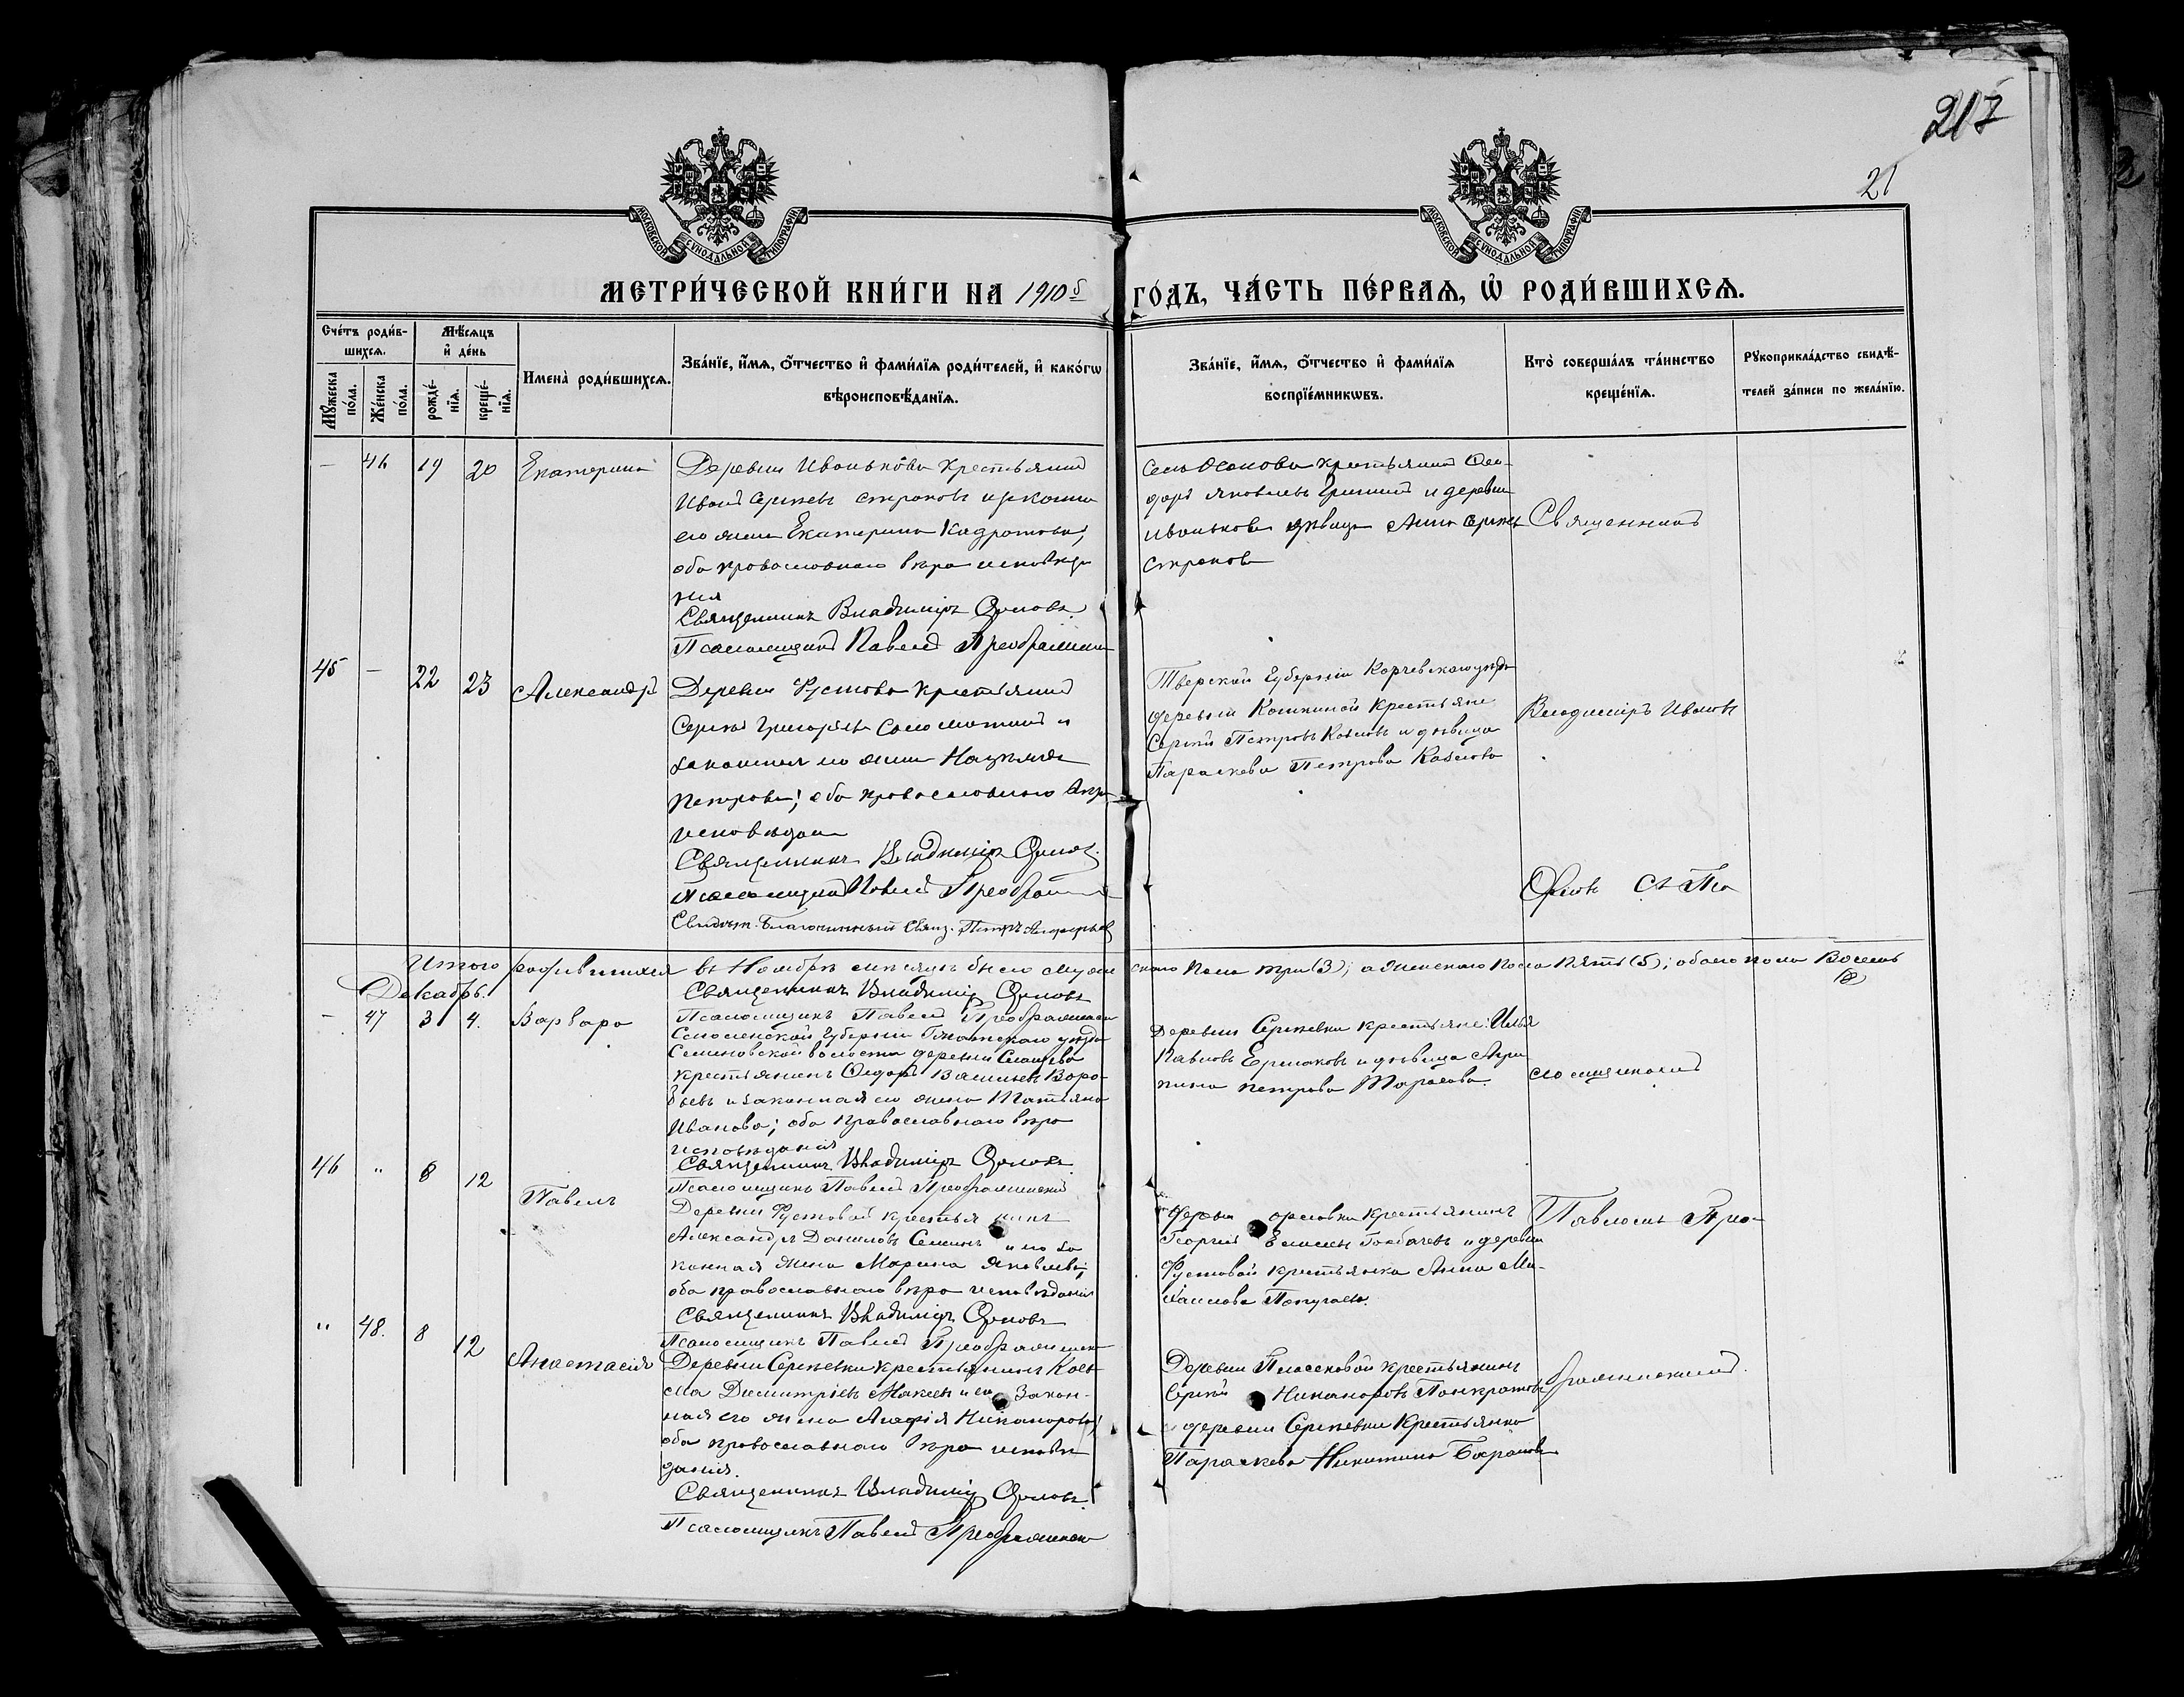 217
21
МОСКОВСКОЙ СѴНОДАЛЬНОЙ ТИПОГРАФІИ
МОСКОВСКОЙ СѴНОДАЛЬНОЙ ТИПОГРАФІИ
МЕТРИ́ЧЕСКОЙ КНИ́ГИ НА 1910й ГО́ДЪ, ЧА́СТЬ ПЕ́РВАЯ, Ѡ҆ РОДИ́ВШИХСЯ.
Сче́тъ роди́в-
шихся.
Мѣ́сяцъ
и҆ де́нь
Мꙋ́жеска по́ла.
Же́нска по́ла.
рожде́-
нїя.
креще́-
нїя.
Имена̀ роди́вшихся.
Зва́нїе, и҆́мя, ѻ҆́тчество и҆ фами́лїя роди́телей, и҆ како́гѡ
вѣроисповѣ́данїя.
Зва́нїе, и҆́мя, ѻ҆́тчество и҆ фами́лїя
воспрїе́мникѡвъ.
Кто̀ соверша́лъ та́инство
креще́нїя.
Рꙋкоприкла́дство свидѣ́-
телей за́писи по жела́нїю.
— 46 19 20 Екатерина
Деревни Иванькова крестьянинъ
Иванъ Сергѣевъ
его жена Екатерина
оба православнаго вѣро исповѣда
нія
Священникъ Владиміръ Орловъ
Псаломщикъ Павелъ Преображенск
крестьянинъ Ѳео-
доръ Яковлевъ и деревни
Иванькова дѣвица Анна Сергѣев
Священникъ
45 — 22 23 Александръ
Деревни Фустова крестьянинъ
Сергѣй Григорьевъ и
законная его жена
Петрова; оба православнаго вѣро
исповѣдан
Священникъ Владиміръ Орловъ.
Псаломщикъ Павелъ Преображ
Свидѣт. Благочинный Свящ. Петръ
Тверской Губерніи Корчевскаго уѣзда
деревни крестьяне
Сергѣй Петровъ и дѣвица
Параскева Петрова
Владиміръ Ивановъ
Орловъ съ Пса
Итого родившихся въ Ноябрѣ мѣсяцѣ было мужескаго пола три (3); а женскаго пола пять (5); обоего пола восемь
(8)
Священникъ Владиміръ Орловъ
Декабрь.
— 47 3 4. Варвара
Псаломщикъ Павелъ Преображенск
Смоленской Губерніи Гжатскаго уѣзда
Семеновской волости деревни
крестьянинъ Ѳедоръ Васильевъ Воро-
бьевъ и законная его жена Татьяна
Иванова; оба православнаго вѣро
исповѣданія
Священникъ Владиміръ Орловъ.
Псаломщикъ Павелъ Преображенскій
Деревни Сергѣевки крестьяне: Илья
Павловъ Ермаковъ и дѣвица Агри
пина Петрова Тарасова.
ломщикомъ
46 " 8 12 Павелъ
Деревни Фустовой крестьянинъ
Александръ Даниловъ Семинъ и его за
конная жена Марина Яковлева;
оба православнаго вѣро исповѣданія
Священникъ Владиміръ Орловъ
Псаломщикъ Павелъ Преображенск
крестьянинъ
Георгій и деревни
Фустовой крестьянка Анна Ми-
хаилова
Павломъ Прео-
" 48. 8 12 Анастасія
Деревни Сергѣевки крестьянинъ Козь-
ма Димитріевъ и его Закон-
ная его жена Агафія Никанорова;
оба православнаго вѣро исповѣ
данія.
Священникъ Владиміръ Орловъ.
Псаломщикъ Павелъ Преображенск
Деревни крестьянинъ
Сергѣй Никаноровъ Панкратовъ
и деревни Сергѣевки Крестьянка
Параскева Никитина Баранова
браженскимъ.